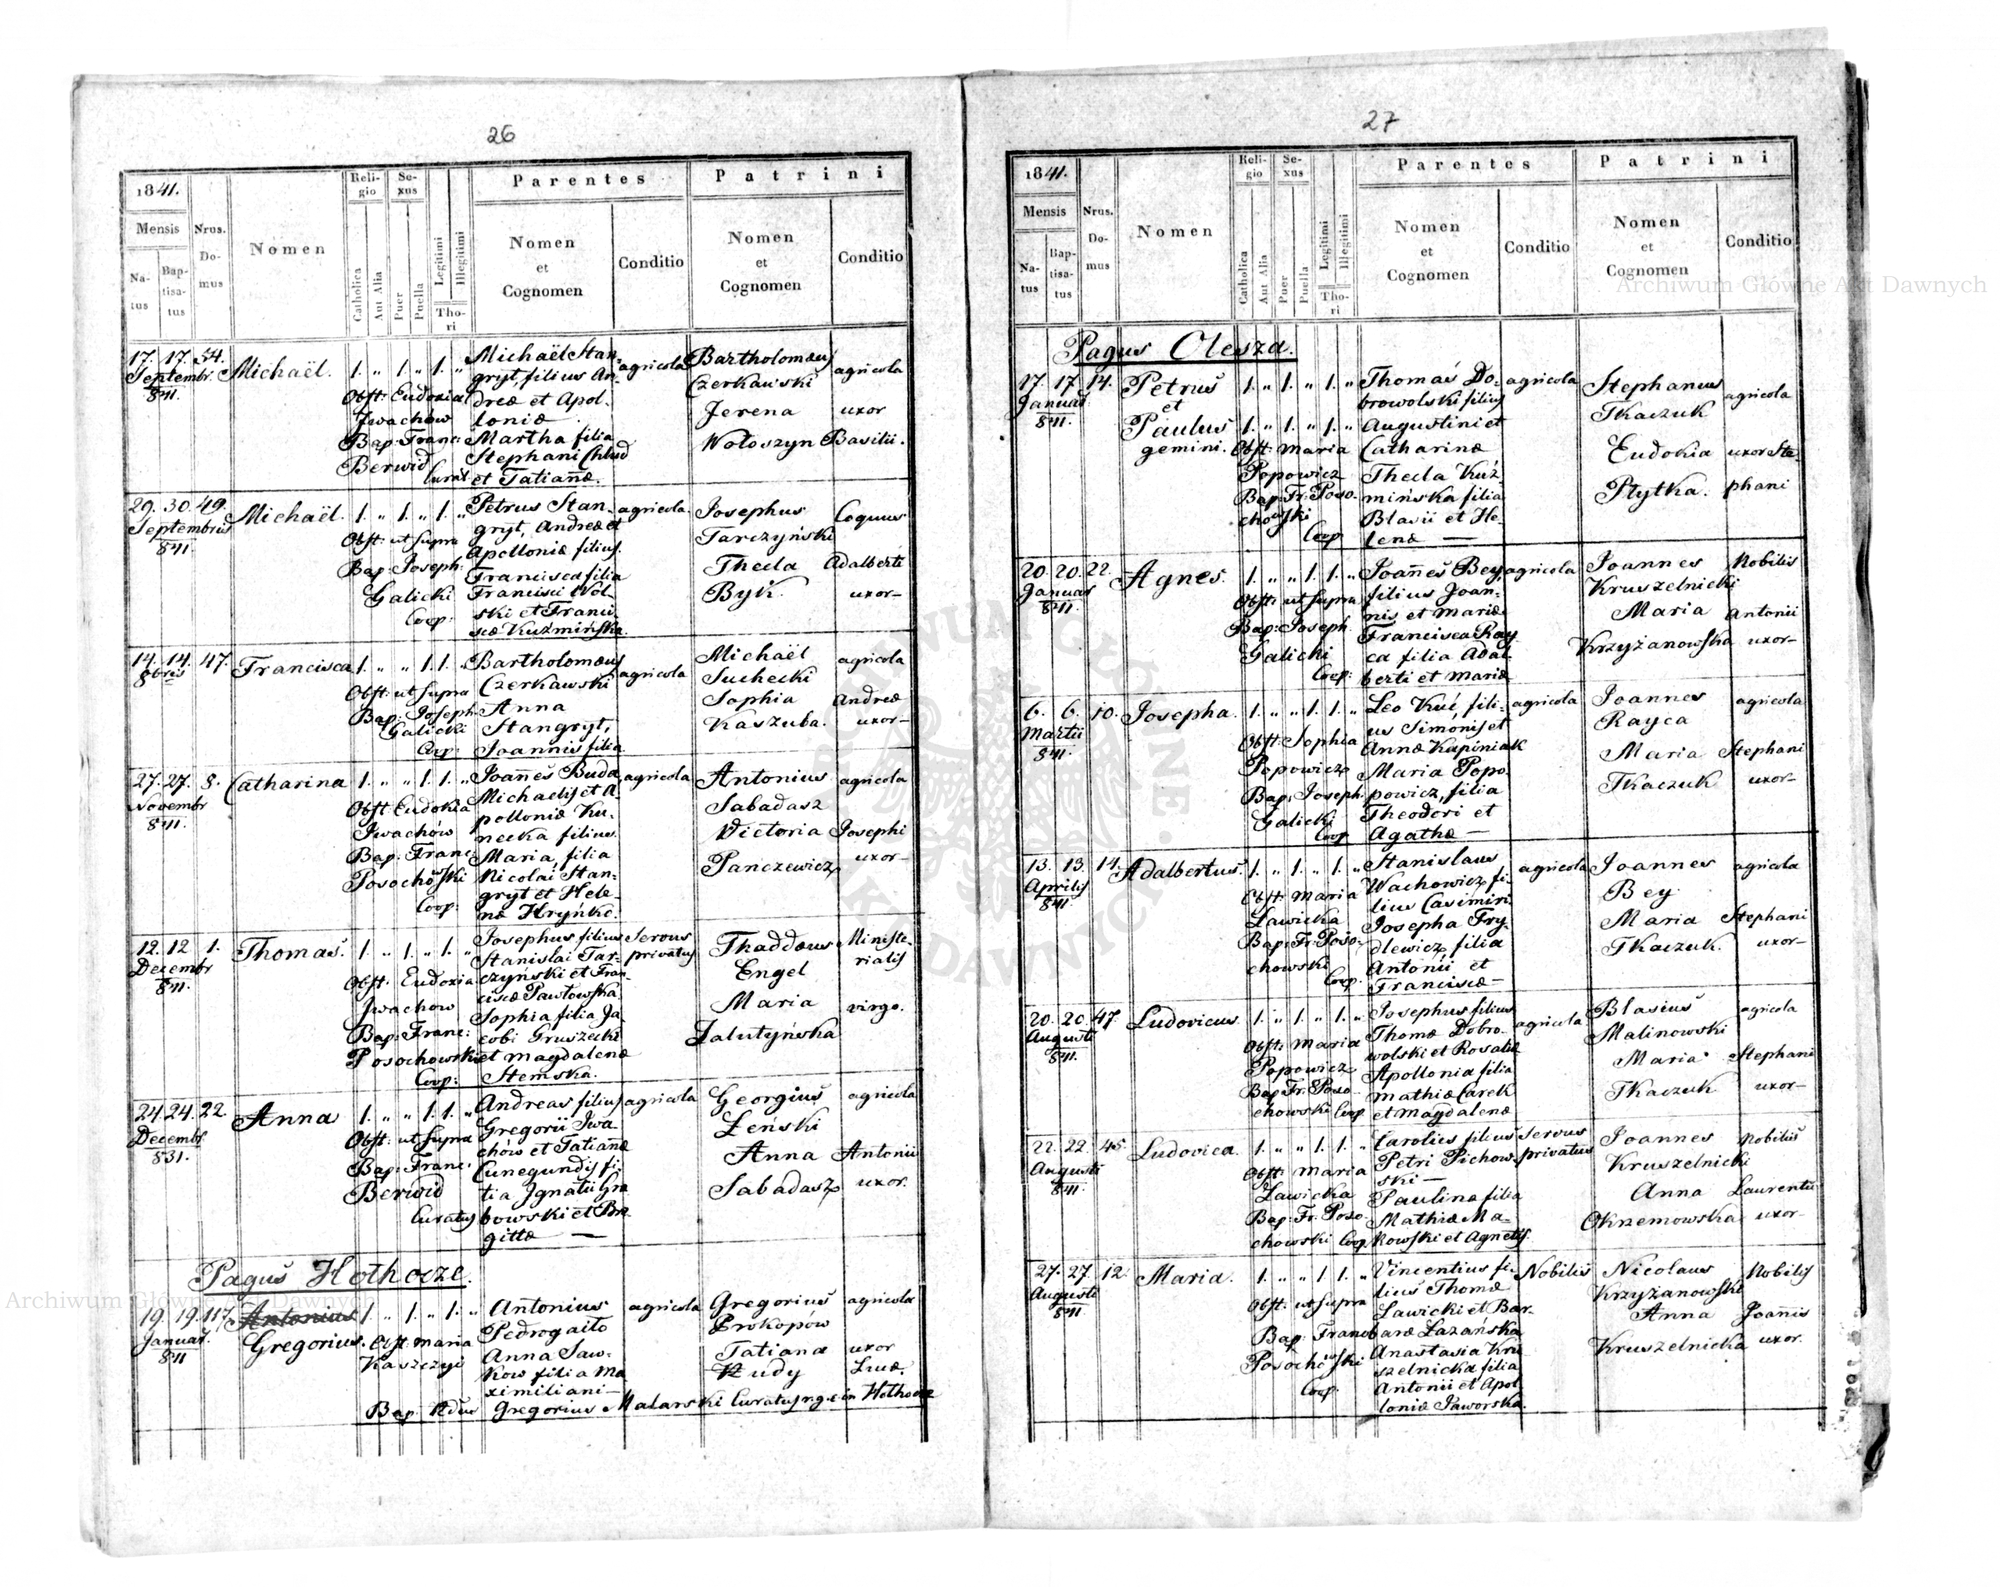 26
1841.
Mensis
Natus
Baptisatus
Nrus. Domus
Nomen
Religio
Catholica
Aut Alia
Sexus
Puer
Puella
Legitimi
Illegitimi
Thori
Parentes
Nomen et Cognomen
Conditio
Patrini
Nomen et Cognomen
Conditio
17. 17. 54.
Septembr.
841.
Michaël.
1. „ 1. „ 1. „
Obst: Eudoxia
Jwachow
Bap: Franc:
Berwid
Curat
Michaël Stan-
gryt, filius An-
dreæ et Apol-
loniæ
Martha filia
Stephani Chlud
et Tatianæ.
agricola
Bartholomæus
Czerkawski
Jerena
Wołoszyn
agricola
uxor
Basilii.
29. 30. 49.
Septembris
841.
Michaël.
1. „ 1. „ 1. „
Obst: ut supra
Bap: Joseph:
Galicki
Coop:
Petrus Stan-
gryt, Andreæ et
Apolloniæ filius.
Francisca filia
Francisci Wol-
ski et Franci-
scæ Kuźmińska.
agricola.
Josephus
Tarczyński
Thecla
Byk.
Coquus
Adalberti
uxor-
14. 14. 47.
8bris
8
Francisca
1. „ „ 1. 1. „
Obst: ut supra
Bap: Joseph
Galicki
Coop:
Bartholomæus
Czerkawski
Anna
Stangryt,
Joannis filia
agricola
Michaël
Suchecki
Sophia
Kaszuba.
agricola
Andreæ
uxor-
27. 27. 8.
Novembr
841.
Catharina
1. „ „ 1. 1. „
Obst: Eudokia
Jwachów
Bap: Franc:
Posochowski
Coop:
Joannes Buda
Michaelis et A-
polloniæ Ku-
necka filius.
Maria, filia
Nicolai Stan-
gryt et Hele-
næ Hryńko.
agricola
Antonius
Sabadasz
Victoria
Panczewicz
agricola
Josephi
uxor-
12. 12 1.
Dezembr
841.
Thomas.
1. „ 1. „ 1. „
Obst: Eudoxia
Jwachow
Bap: Franc:
Posochowski
Coop:
Josephus filius
Stanislai Tar-
czyński et Fran-
ciscæ Pawłowska,
Sophia filia Ja
cobi Gruszecki
et Magdalenæ
Stemska.
Servus
privatus
Thaddæus
Engel
Maria
Zalutyńska
Ministe-
rialis
virgo.
24. 24. 22
Decembr.
831.
Anna
1. „ „ 1. 1. „
Obst: ut supra
Bap: Franc:
Berwid
Curatus
Andreas filius
Gregorii Jwa
chów et Tatianæ
Cunegundis fi-
lia Jgnatii Gra
bowski et Bri
gittæ —
agricola
Georgius
Łeński
Anna
Sabadasz
agricola
Antonii
uxor.
Pagus Hothocze.
19. 19. 117.
Januar.
841
Antonius
Gregorius.
1. „ 1. „ 1. „
Obst: Maria
Kaszczyi
Antonius
Pedrogaito
Anna Saw-
kow filia Ma
ximiliani—
agricola
Gregorius
Prokopow
Tatianæ
Rudy
agricola
uxor
Lucæ
Bap: Rdus Gregorius Malarski Curatus r. g. c. in Hothocze
27
1841.
Mensis
Natus
Baptisatus
Nrus. Domus
Nomen
Religio
Catholica
Aut Alia
Sexus
Puer
Puella
Legitimi
Illegitimi
Thori
Parentes
Nomen et Cognomen
Conditio
Patrini
Nomen et Cognomen
Conditio
Pagus Olesza.
17. 17. 14.
Januar.
841.
Petrus
et
Paulus
gemini.
1. „ 1. „ 1. „
1. „ 1. „ 1. „
Obst: Maria
Popowicz
Bap: Fr: Poso-
chowski
Coop
Thomas Do-
browolski filius
Augustini et
Catharinæ
Thecla Kuź-
mińska filia
Blasii et He-
lenæ —
agricola
Stephanus
Tkaczuk
Eudokia
Płytka.
agricola
uxor Ste-
phani
20. 20. 22.
Januar
841.
Agnes.
1. „ „ 1. 1. „
Obst: ut supra
Bap: Joseph
Galicki
Coop:
Joannes Bey,
filius Joan-
nis et Mariæ
Francisca Ray
ca filia Adal-
berti et Mariæ
agricola
Joannes
Kruszelnicki
Maria
Krzyżanowska
Nobilis
Antonii
uxor-
6. 6. 10.
Martii
841.
Josepha.
1. „ „ 1. 1. „
Obst: Sophia
Popowicz
Bap: Joseph.
Galicki
Coop
Leo Kuć fili-
us Simonis et
Annæ Kupiniak
Maria Popo-
powicz, filia
Theodori et
Agathæ —
agricola
Joannes
Rayca
Maria
Tkaczuk
agricola
Stephani
uxor-
13. 13. 14.
Aprilis
841.
Adalbertus.
1. „ 1. „ 1. „
Obst: Maria
Ławicka
Bap: Fr: Poso-
chowski
Coop.
Stanislaus
Wachowicz, fi-
lius Casimiri
Josepha Fry-
dlewicz, filia
Antonii et
Franciscæ—
agricola
Joannes
Bey
Maria
Tkaczuk.
agricola
Stephani
uxor-
20. 20. 47.
Augusti
841.
Ludovicus.
1. „ 1. „ 1. „
Obst: Maria
Popowicz
Bap: Fr: Poso-
chowski Coop.
Josephus filius
Thomæ Dobro-
wolski et Rosaliæ
Apollonia filia
Mathiæ Carek
et Magdalenæ
agricola
Blasius
Malinowski
Maria
Tkaczuk
agricola
Stephani
uxor-
22. 22. 45.
Augusti
841.
Ludovica.
1. „ „ 1. 1. „
Obst: Maria
Ławicka
Bap: Fr: Poso-
chowski Coop
Carolus filius
Petri Pichow-
ski—
Paulina filia
Mathiæ Ma-
kowski et Agnetis.
Servus
privatus
Joannes
Kruszelnicki
Anna
Okrzemowska
Nobilis
Laurentii
uxor-
27. 27. 12.
Augusti
841.
Maria.
1. „ „ 1. 1. „
Obst: ut supra
Bap: Franc
Posochowski
Coop.
Vincentius fi-
lius Thomæ
Ławicki et Bar-
baræ Łazańska
Anastasia Kru
szelnicka filia
Antonii et Apol
loniæ Jaworska.
Nobilis
Nicolaus
Krzyżanowski
Anna
Kruszelnicka
Nobilis
Joanis
uxor.
Archiwum Główne Akt Dawnych
Archiwum Główne Akt Dawnych
ARCHIWUM GŁÓWNE AKT DAWNYCH